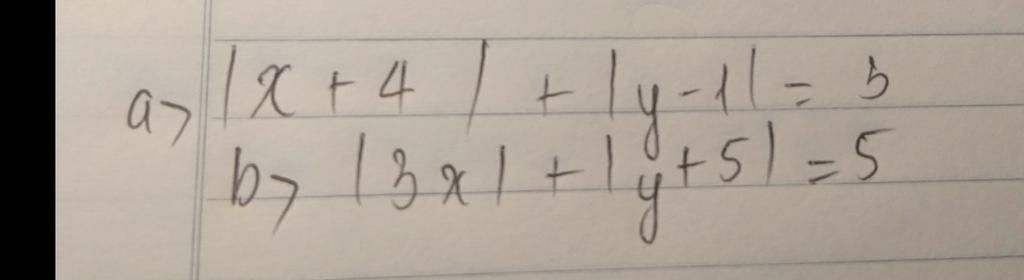 a> |x + 4| + |y - 1| = 5
b> |3x| + |y + 5| = 5